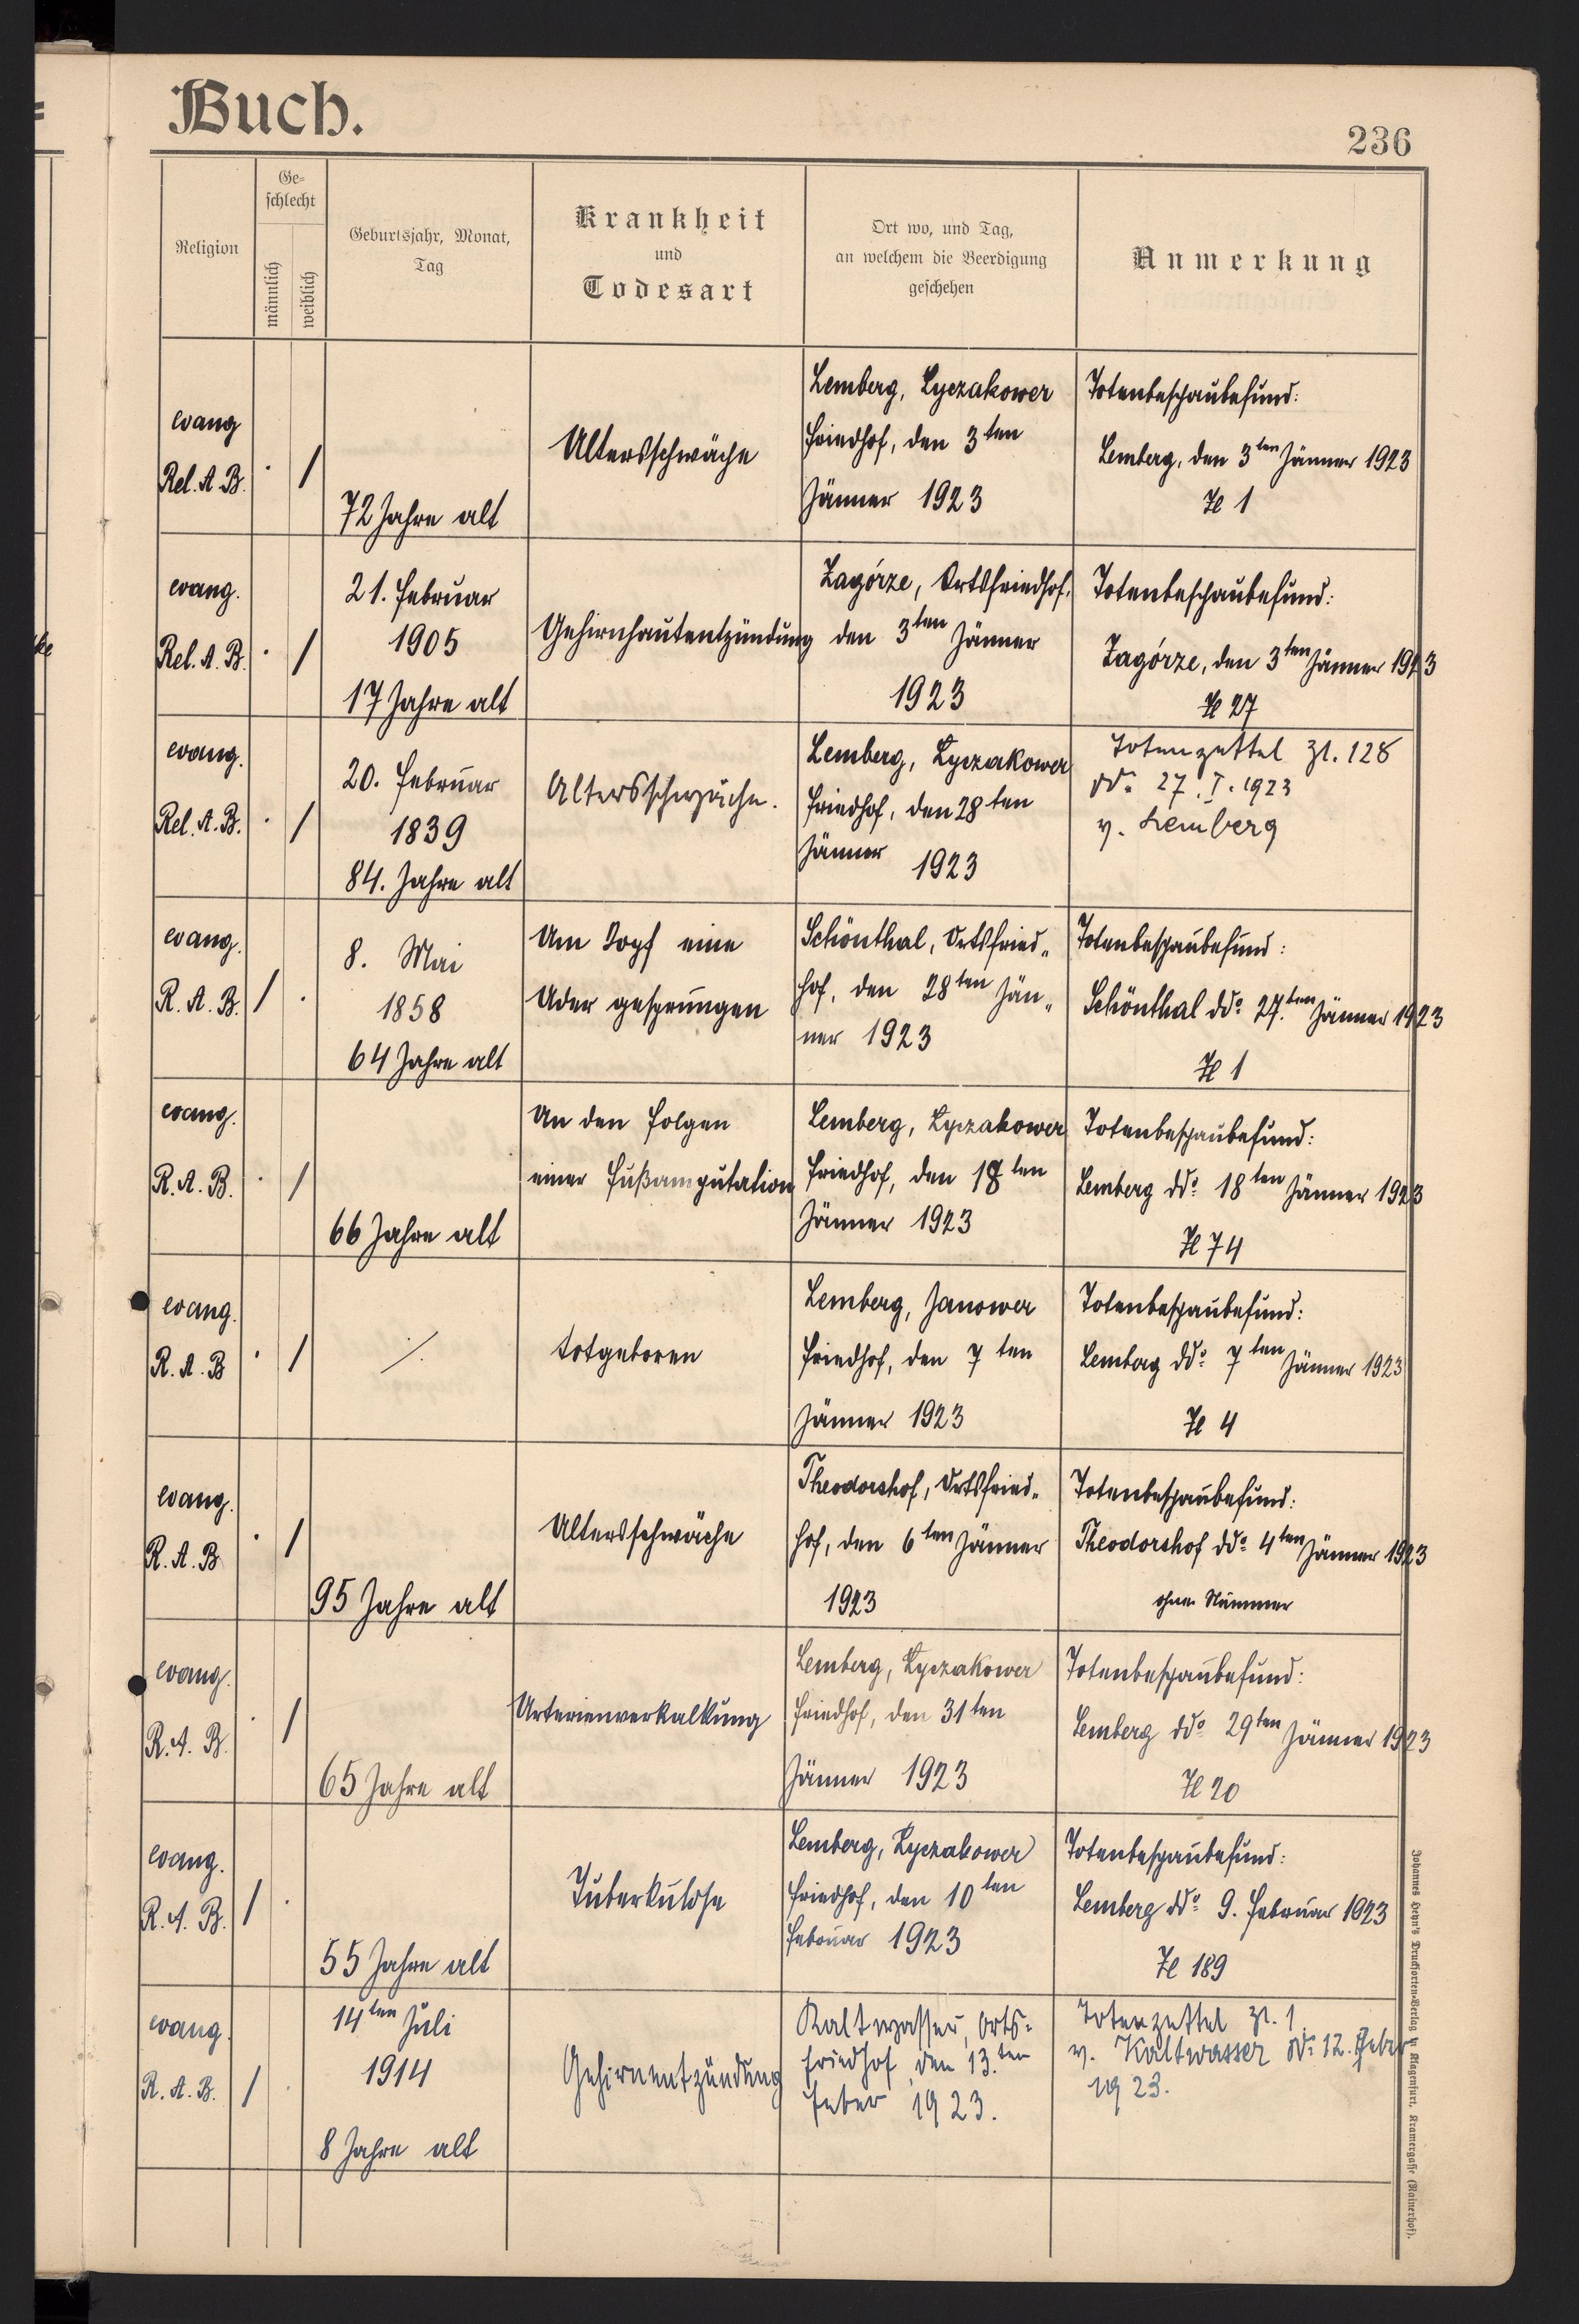 Buch.
236
Religion
Ge-
schlecht
männlich
weiblich
Geburtsjahr, Monat,
Tag
Krankheit
und
Todesart
Ort wo, und Tag,
an welchem die Beerdigung
geschehen
Anmerkung
evang
Rel. A. B.
· /
72 Jahre alt
Altersschwäche
Lemberg, Lyczakower
Friedhof, den 3ten
Jänner 1923
Totenbeschaubefund:
Lemberg, den 3ten Jänner 1923
Zl 1
evang.
Rel. A. B.
· /
21. Februar
1905
17 Jahre alt
Gehirnhautentzündung
Zagórze, Ortsfriedhof,
den 3ten Jänner
1923
Totenbeschaubefund:
Zagórze, den 3ten Jänner 1923
Zl 27
evang.
Rel. A. B.
· /
20. Februar
1839
84. Jahre alt
Altersschwäche.
Lemberg, Lyczakower
Friedhof, den 28ten
Jänner 1923
Totenzettel Zl. 128
ddo 27. I. 1923
v. Lemberg
evang.
R. A. B.
/ ·
8. Mai
1858
64 Jahre alt
Am Kopf eine
Ader gesprungen
Schönthal, Ortsfried„
hof, den 28ten Jän„
ner 1923
Totenbeschaubefund:
Schönthal ddo 27.ten Jänner 1923
Zl 1
evang.
R. A. B.
· /
66 Jahre alt
An den Folgen
einer Fußamputation
Lemberg, Lyczakower
Friedhof, den 18ten
Jänner 1923
Totenbeschaubefund:
Lemberg ddo 18ten Jänner 1923
Zl 74
evang.
R. A. B
· /
./.
totgeboren
Lemberg, Janower
Friedhof, den 7ten
Jänner 1923
Totenbeschaubefund:
Lemberg ddo 7ten Jänner 1923
Zl 4
evang.
R. A. B
· /
95 Jahre alt
Altersschwäche
Theodorshof, Ortsfried„
hof, den 6ten Jänner
1923
Totenbeschaubefund:
Theodorshof ddo 4ten Jänner 1923
ohne Nummer
evang.
R. A. B.
· /
65 Jahre alt
Arterienverkalkung
Lemberg, Lyczakower
Friedhof, den 31ten
Jänner 1923
Totenbeschaubefund:
Lemberg ddo 29ten Jänner 1923
Zl 20
evang.
R. A. B.
/ ·
55 Jahre alt
Tuberkulose
Lemberg, Lyczakower
Friedhof, den 10ten
Februar 1923
Totenbeschaubefund:
Lemberg ddo 9. Februar 1923
Zl 189
evang.
R. A. B.
/ ·
14ten Juli
1914
8 Jahre alt
Gehirnentzündung
Kaltwasser, Orts-
friedhof, den 13.ten
Feber 1923.
Totenzettel Zl. 1
v. Kaltwasser ddo 12. Feber
1923.
Johannes Heyn's Drucksorten-Verlag in Klagenfurt, Kramergasse (Rainerhof).